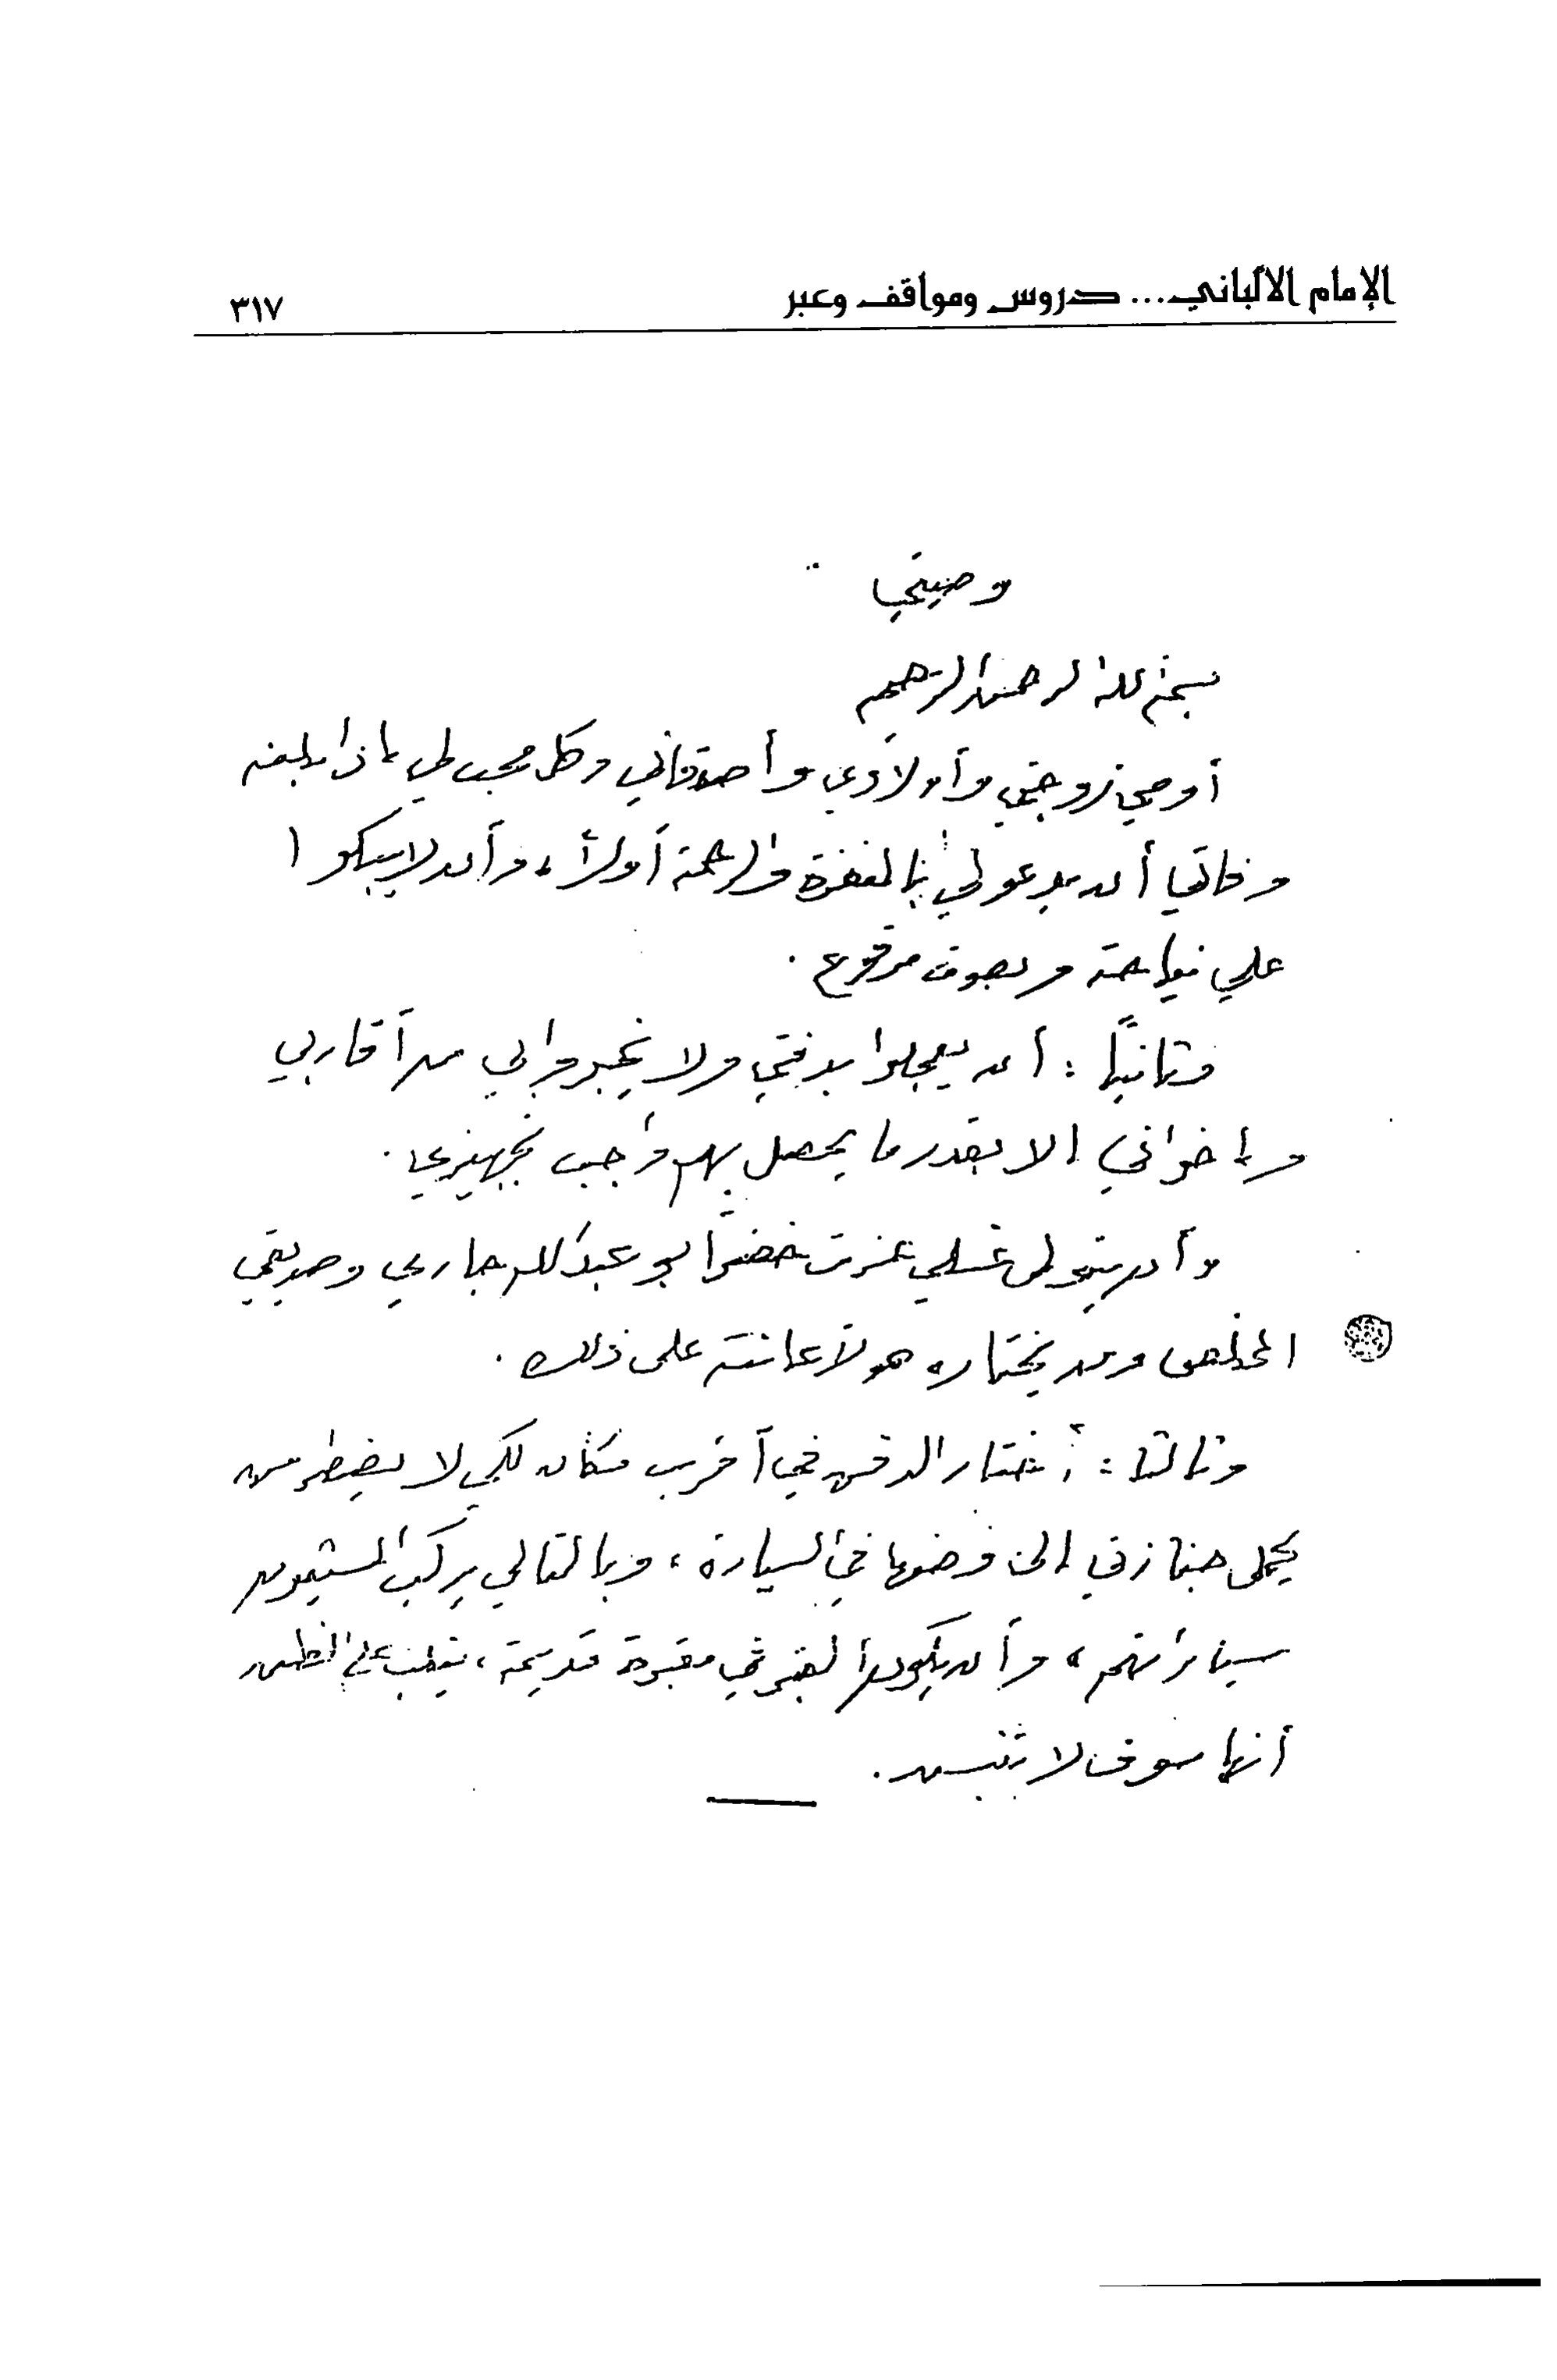 الإمام الألباني... دروس ومواقف وعبر
٣١٧
وصيتي
بسم الله الرحمن الرحيم
أوصي زوجتي وأولادي وأصدقائي وكل محب لي إذا بلغه
وفاتي أن يدعو لي بالمغفرة والرحمة أولاً، وأن لا يبكوا
علي نياحة وبصوت مرتفع.
وثانياً: أن يعجلوا بدفني ولا يخبروا بي من أقاربي
وإخواني إلا بقدر ما يحصل بهم واجب تجهيزي.
وأن يتولى غسلي عزت خضر أبو عبدالله جاري وصديقي
المخلص ومن يختاره هو لإعانته على ذلك.
وثالثا: أختار الدفن في أقرب مكان لكي لا يضطر من
يحمل جنازتي إلى وضعها في السيارة، وبالتالي يركب المشيعون
سياراتهم، وأن يكون القبر في مقبرة قديمة، يغلب على الظن
أنها سوف لا تنبش.